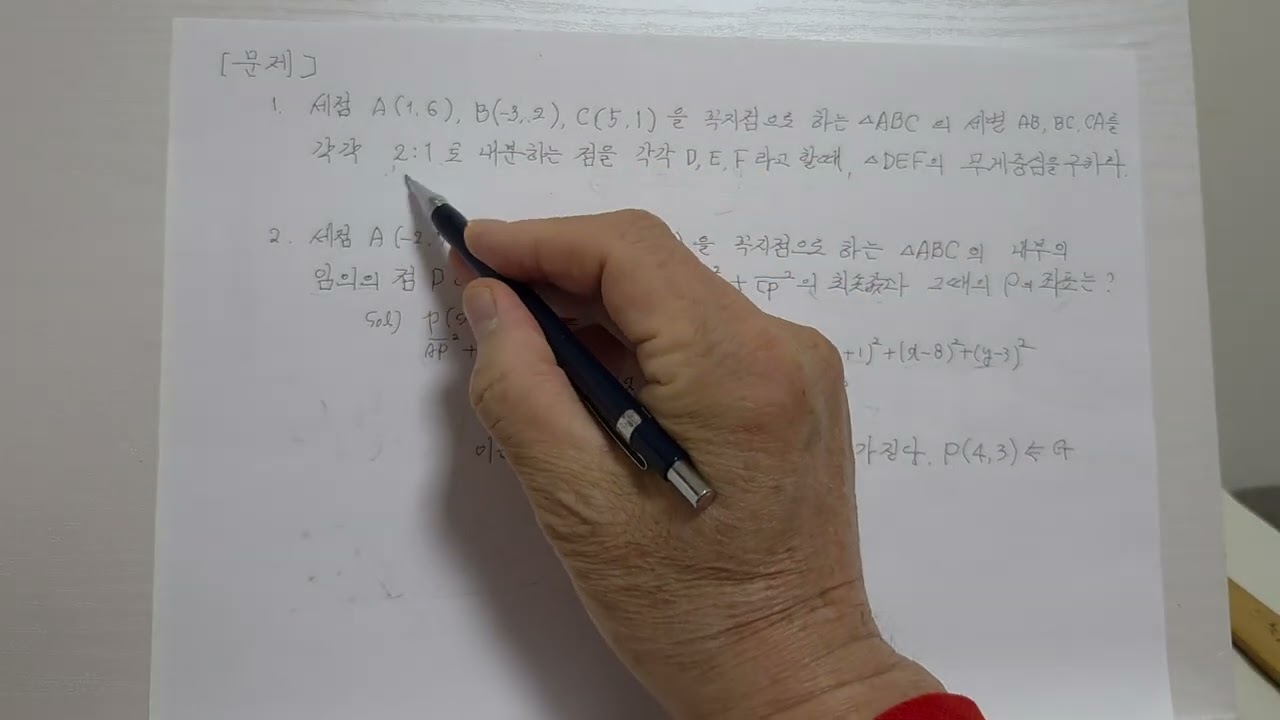 [문제]
1. 세점 A(1,6), B(-3,2), C(5,1)을 꼭지점으로 하는 △ABC의 세변 AB, BC, CA를
각각 2:1로 내분하는 점을 각각 D, E, F라고 할때, △DEF의 무게중심을구하라.
2. 세점 A(-2, )을 꼭지점으로 하는 △ABC의 내부의
임의의 점 P + C̅P̅²의 최솟값과 그때의 P의 좌표는?
Sol) P(
A̅P̅² + +1)²+(x-8)²+(y-3)²
가진다. P(4,3) ⇐ G